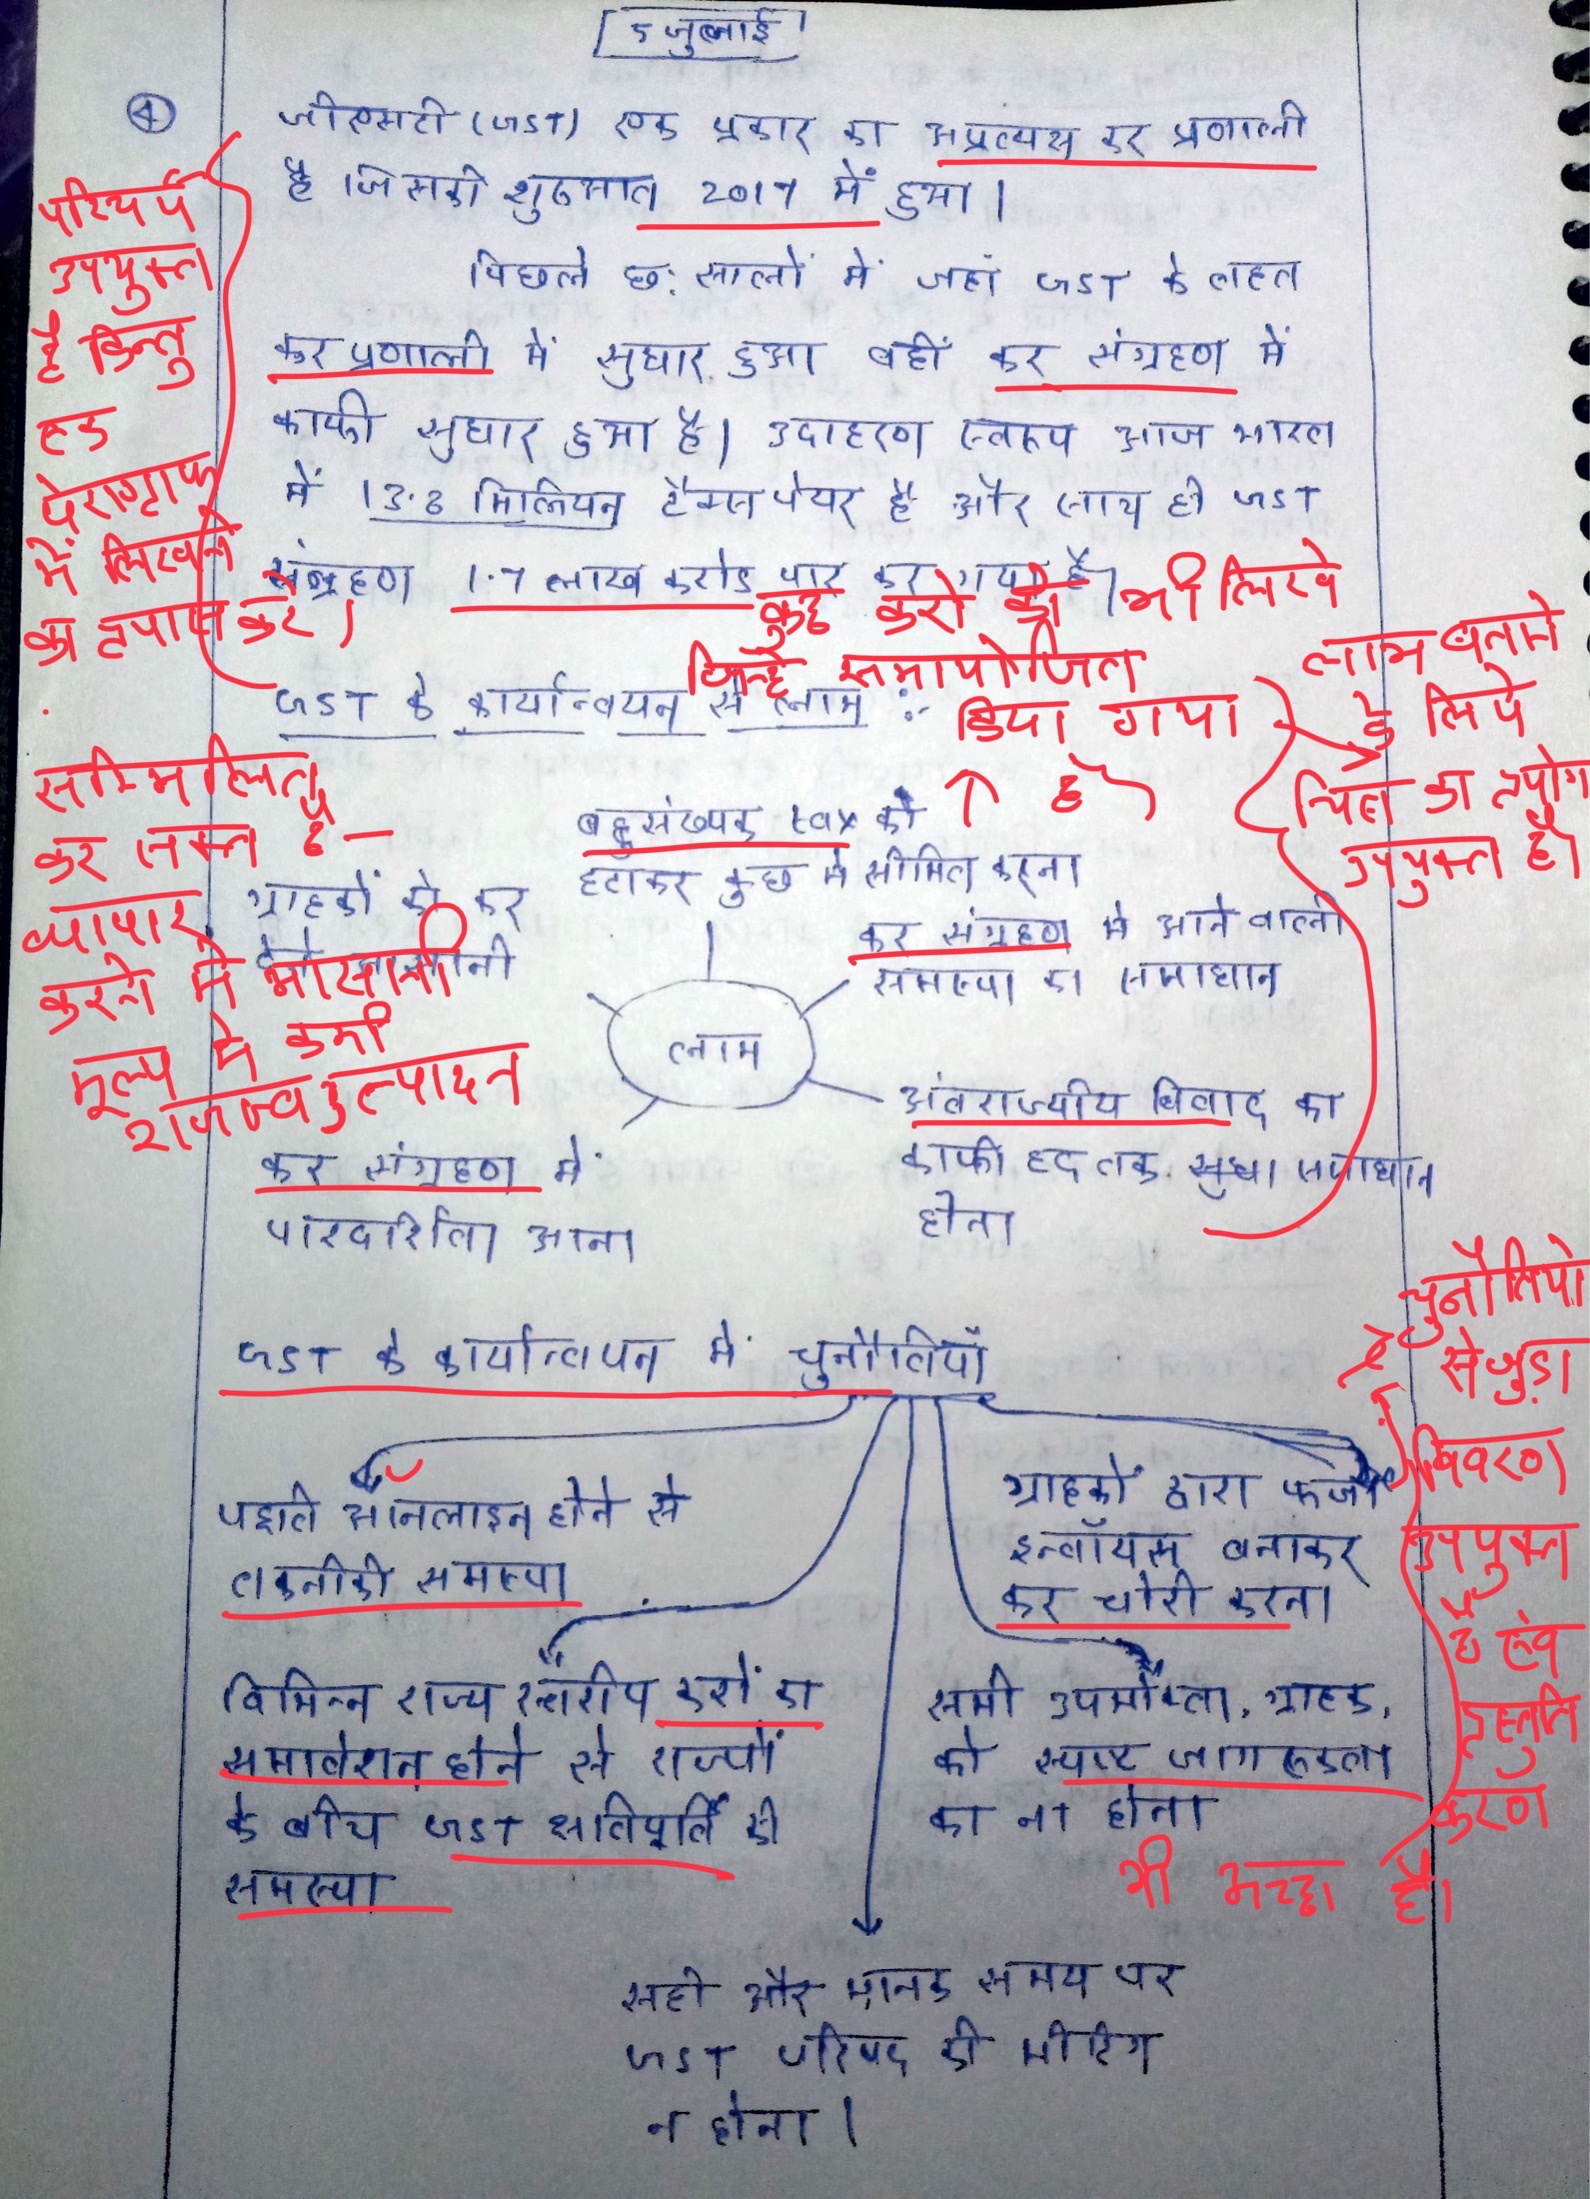 5 जुलाई
④
जीएसटी (GST) एक प्रकार का अप्रत्यक्ष कर प्रणाली
है जिसकी शुरुआत 2017 में हुआ।
पिछले छ: सालों में जहां GST के तहत
कर प्रणाली में सुधार हुआ वहीं कर संग्रहण में
काफी सुधार हुआ है। उदाहरण स्वरूप आज भारत
में 13.8 मिलियन टैक्स पेयर है और साथ ही GST
संग्रहण 1.7 लाख करोड पार कर गया है।
परिचय
उपयुक्त
है किन्तु
एक
पेराग्राफ
में लिखने
का प्रयास करें।
GST के कार्यान्वयन से लाभ :-
कुछ करो को भी लिखे
जिन्हे समायोजित
किया गया
है
लाभ बताने
के लिये
चित्र का प्रयोग
उपयुक्त है।
सम्मिलित
कर
व्यापार
करने में आसानी
मूल्य में कमी
राजस्व उत्पादन
बहुसंख्यक tax को
हटाकर कुछ में सीमित करना
ग्राहकों को कर
देने आसानी
कर संग्रहण में आने वाली
समस्या का समाधान
लाभ
अंतराज्यीय विवाद का
काफी हद तक समाधान
होना
कर संग्रहण में
पारदर्शिता आना
GST के कार्यान्वयन में चुनौतियाँ
पद्धति ऑनलाइन होने से
तकनीकी समस्या
ग्राहकों द्वारा फर्जी
इन्वॉयस बनाकर
कर चोरी करना
विभिन्न राज्य स्तरीय करों का
समावेशन होने से राज्यों
के बीच GST क्षतिपूर्ति की
समस्या
सभी उपभोक्ता, ग्राहक,
को स्पष्ट जागरूकता
का ना होना
सही और मानक समय पर
GST परिषद की मीटिंग
न होना।
चुनौतियो
से जुड़ा
विवरण
उपयुक्त
है एंव
प्रस्तुति
करण
भी अच्छा है।